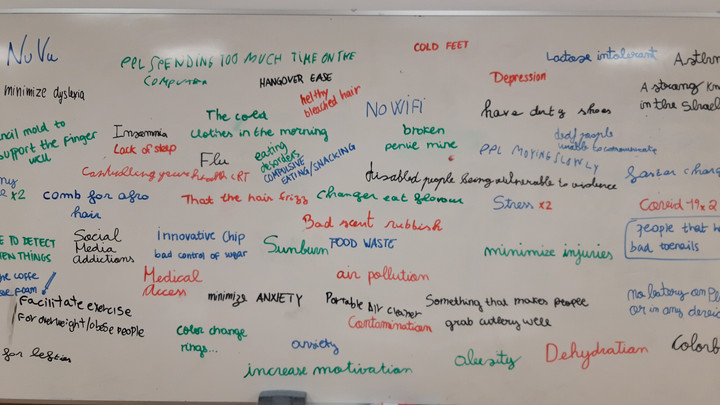 NuVu
PPL SPENDING TOO MUCH TIME ON THE
COMPUTER
COLD FEET
Lactose intolerant
Asthm
minimize dyslexia
HANGOVER EASE
helthy
bleached hair
Depression
A strong kn
in the
The cold
clothes in the morning
NO WIFI
have dirty shoes
ncil mold to
upport the finger
well
Insomnia
Lack of sleep
Flu
eating
disorders
COMPULSIVE
EATING/SNACKING
broken
mine
PPL MOVING SLOWLY
deaf people
unable to communicate
your health
disabled people being vulnerable to violence
faster charg
x2
comb for afro
hair
That the hair frizz
Changer eat flavour
Stress x2
Covid 19 x2
Bad scent rubbish
people that h
bad toenails
E TO DETECT
TEN THINGS
Social
Media
Addictions
innovative chip
bad control of
Sunburn
FOOD WASTE
minimize injuries
the coffe
foam
Medical
access
air pollution
Facilitate exercise
For overweight/obese people
minimize ANXIETY
Portable Air cleaner
Something that makes people
grab cutlery well
no batery on
or in any
Contamination
color change
rings...
for
anxiety
increase motivation
obesity
Dehydration
Colorb